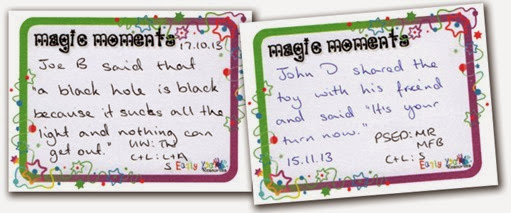 magic moments
17.10.13
Joe B said that
"a black hole is black
because it sucks all the
light and nothing can
get out."
UW: TW
C+L: L+A
S
Early Years
magic moments
John D shared the
toy with his friend
and said "It's your
turn now."
PSED: MR
MFB
15.11.13
C+L: S
Early Years